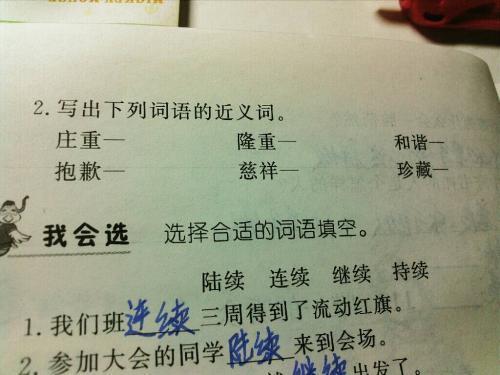 2.写出下列词语的近义词。
庄重— 隆重— 和谐—
抱歉— 慈祥— 珍藏—
我会选 选择合适的词语填空。
陆续 连续 继续 持续
1.我们班连续三周得到了流动红旗。
2.参加大会的同学陆续来到会场。
继续出发了。